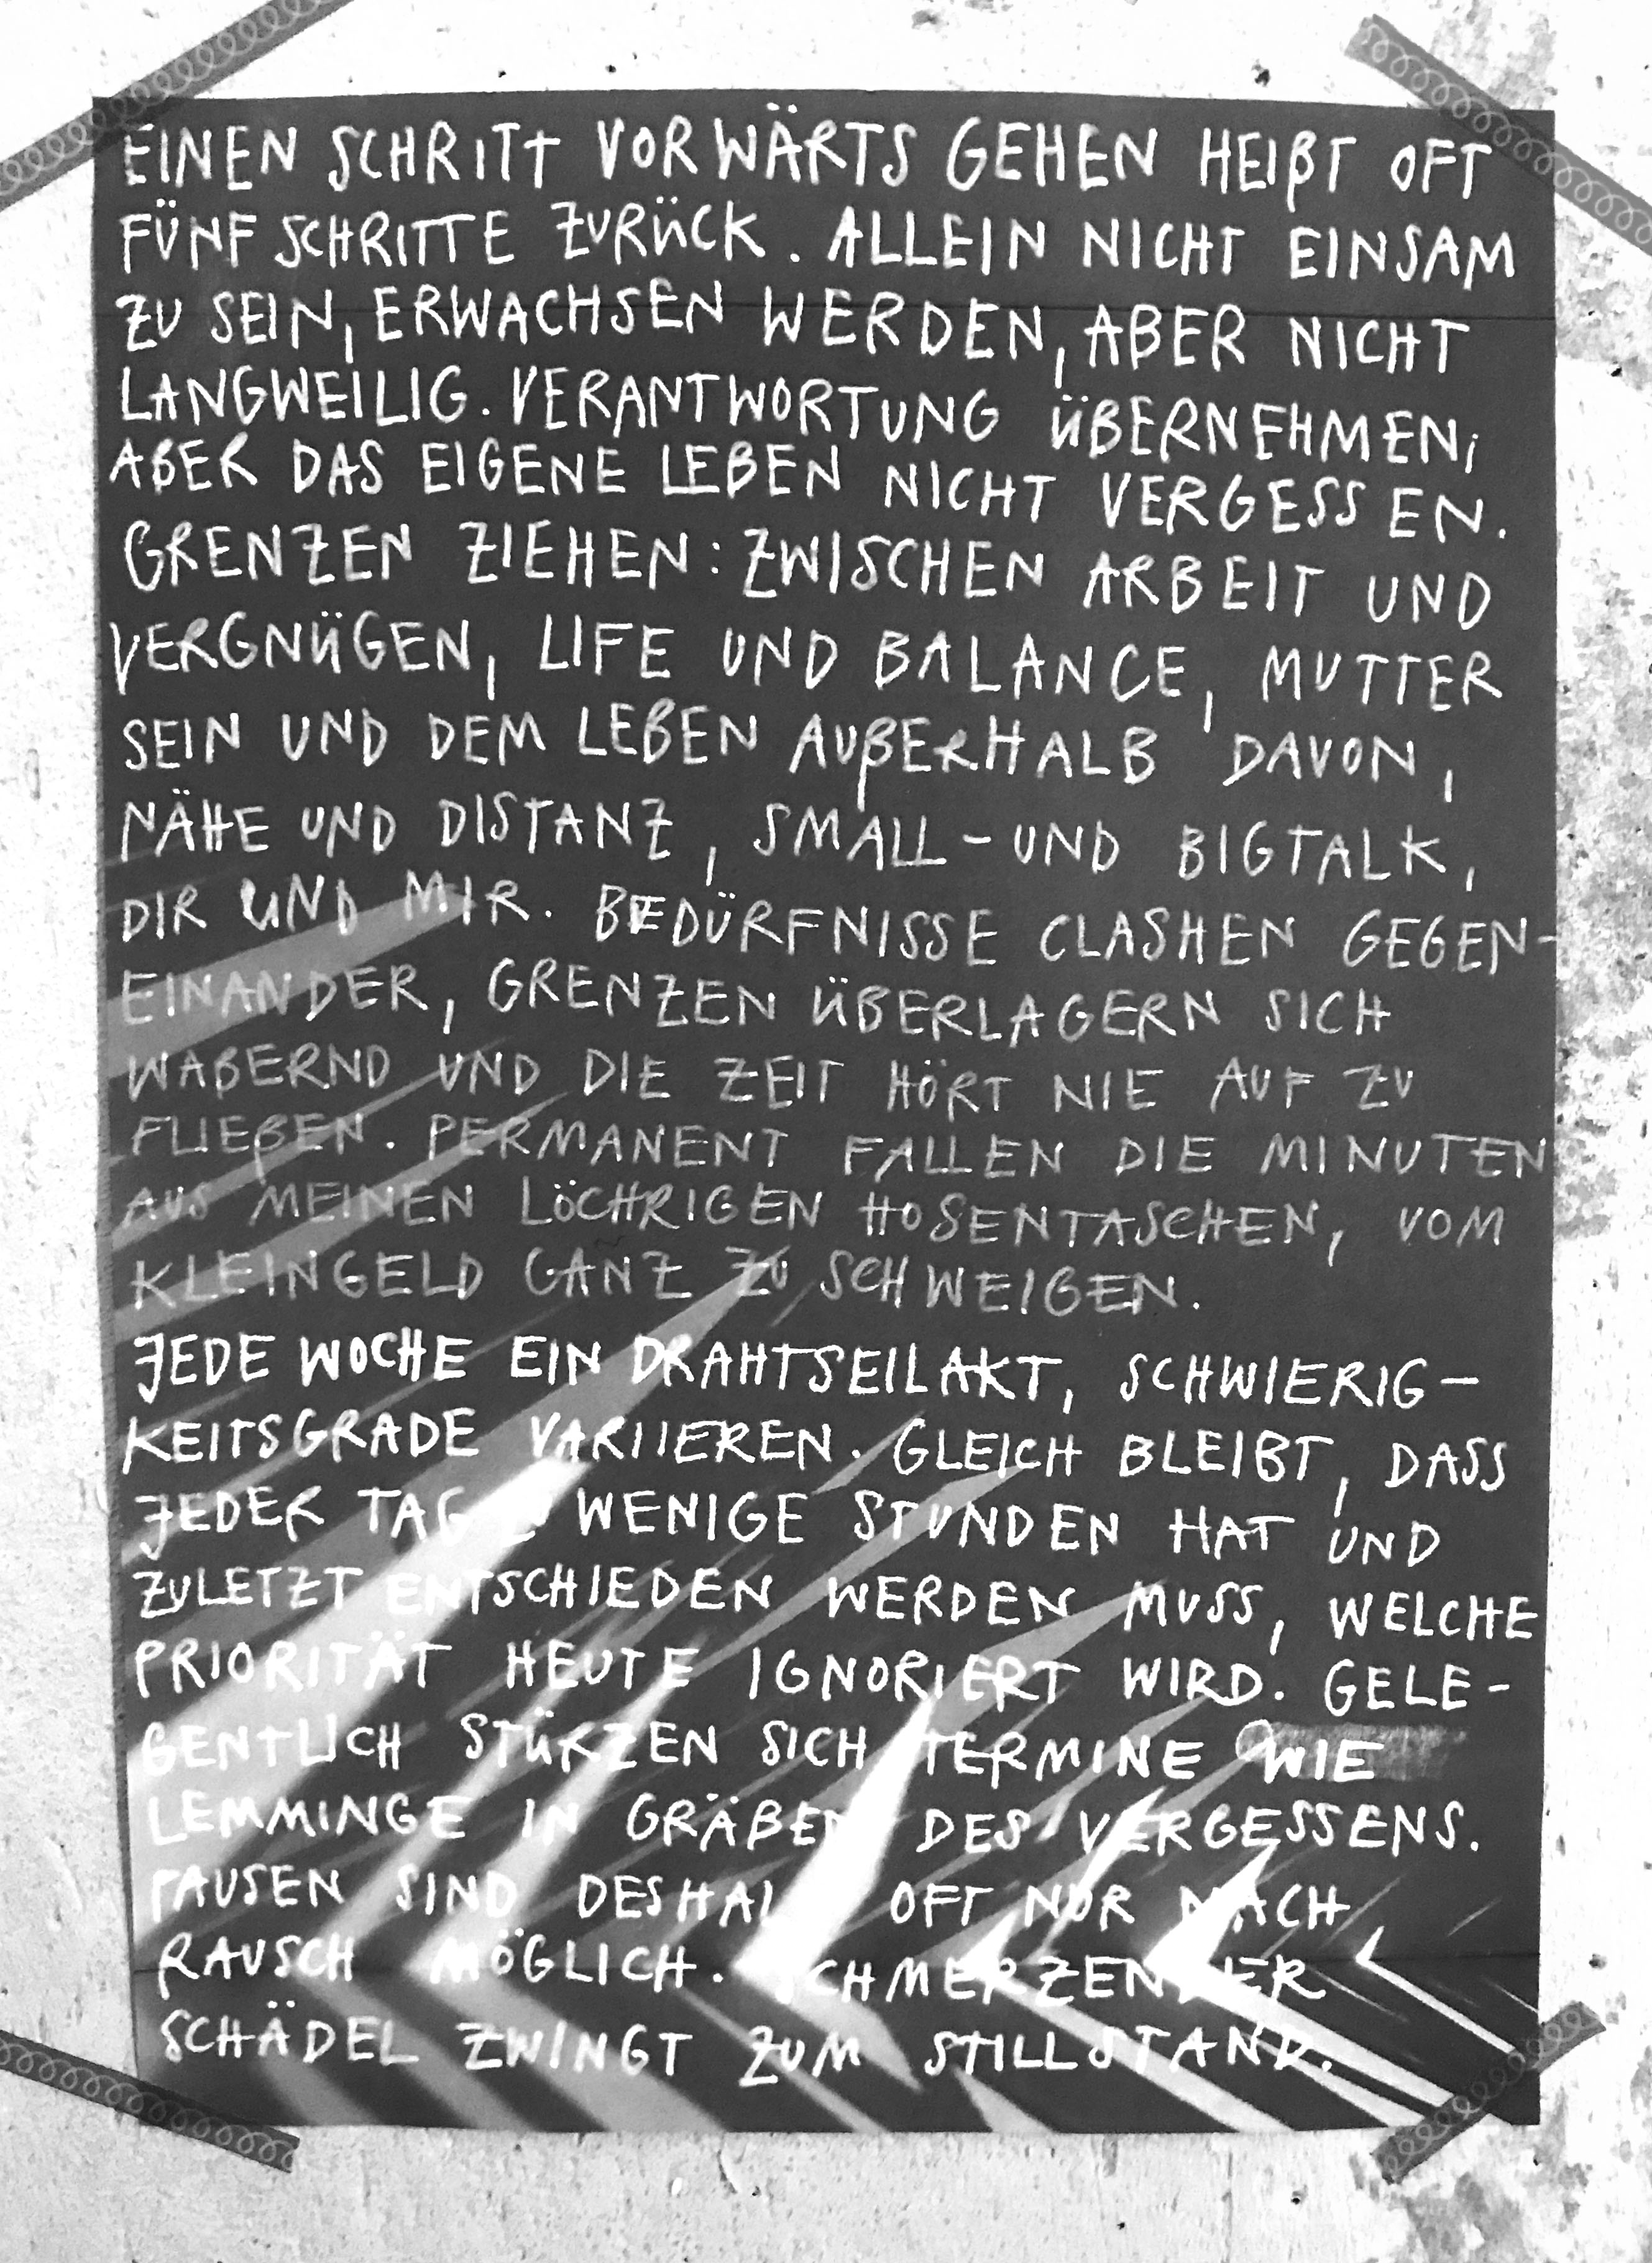 EINEN SCHRITT VORWÄRTS GEHEN HEIßT OFT
FÜNF SCHRITTE ZURÜCK. ALLEIN NICHT EINSAM
ZU SEIN, ERWACHSEN WERDEN, ABER NICHT
LANGWEILIG. VERANTWORTUNG ÜBERNEHMEN,
ABER DAS EIGENE LEBEN NICHT VERGESSEN.
GRENZEN ZIEHEN: ZWISCHEN ARBEIT UND
VERGNÜGEN, LIFE UND BALANCE, MUTTER
SEIN UND DEM LEBEN AUßERHALB DAVON,
NÄHE UND DISTANZ, SMALL-UND BIGTALK,
DIR UND MIR. BEDÜRFNISSE CLASHEN GEGEN-
EINANDER, GRENZEN ÜBERLAGERN SICH
WABERND UND DIE ZEIT HÖRT NIE AUF ZU
FLIEßEN. PERMANENT FALLEN DIE MINUTEN
AUS MEINEN LÖCHRIGEN HOSENTASCHEN, VOM
KLEINGELD GANZ ZU SCHWEIGEN.
JEDE WOCHE EIN DRAHTSEILAKT, SCHWIERIG-
KEITSGRADE VARIIEREN. GLEICH BLEIBT, DASS
JEDER TAG WENIGE STUNDEN HAT UND
ZULETZT ENTSCHIEDEN WERDEN MUSS, WELCHE
PRIORITÄT HEUTE IGNORIERT WIRD. GELE-
GENTLICH STÜRZEN SICH TERMINE WIE
LEMMINGE IN GRÄBEN DES VERGESSENS.
PAUSEN SIND DESHALB OFT NUR NACH
RAUSCH MÖGLICH. SCHMERZENDER
SCHÄDEL ZWINGT ZUM STILLSTAND.